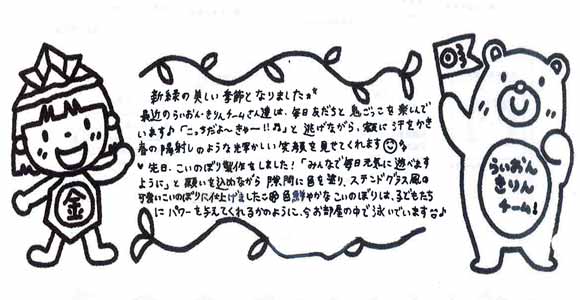 新緑の美しい季節となりました
最近のらいおん・きりんチームさん達は、毎日友だちと鬼ごっこを楽しんで
います♪「こっちだよ〜きゃー!!」と逃げながら、額に汗をかき
春の陽射しのような光輝かしい笑顔を見せてくれます
先日、こいのぼり製作をしました!「みんなで毎日元気に遊べます
ように」と願いを込めながら隙間に色を塗り、ステンドグラス風の
可愛いこいのぼりに仕上げました 色鮮やかなこいのぼりは、子どもたち
にパワーを与えてくれるかのように、今お部屋の中で泳いでいます♪
金
らいおん
きりん
チーム!